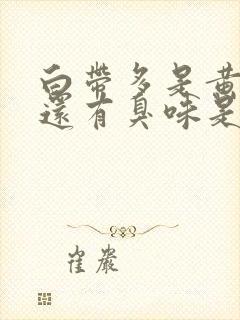 白帶多是黃
還有臭味是
崔巖